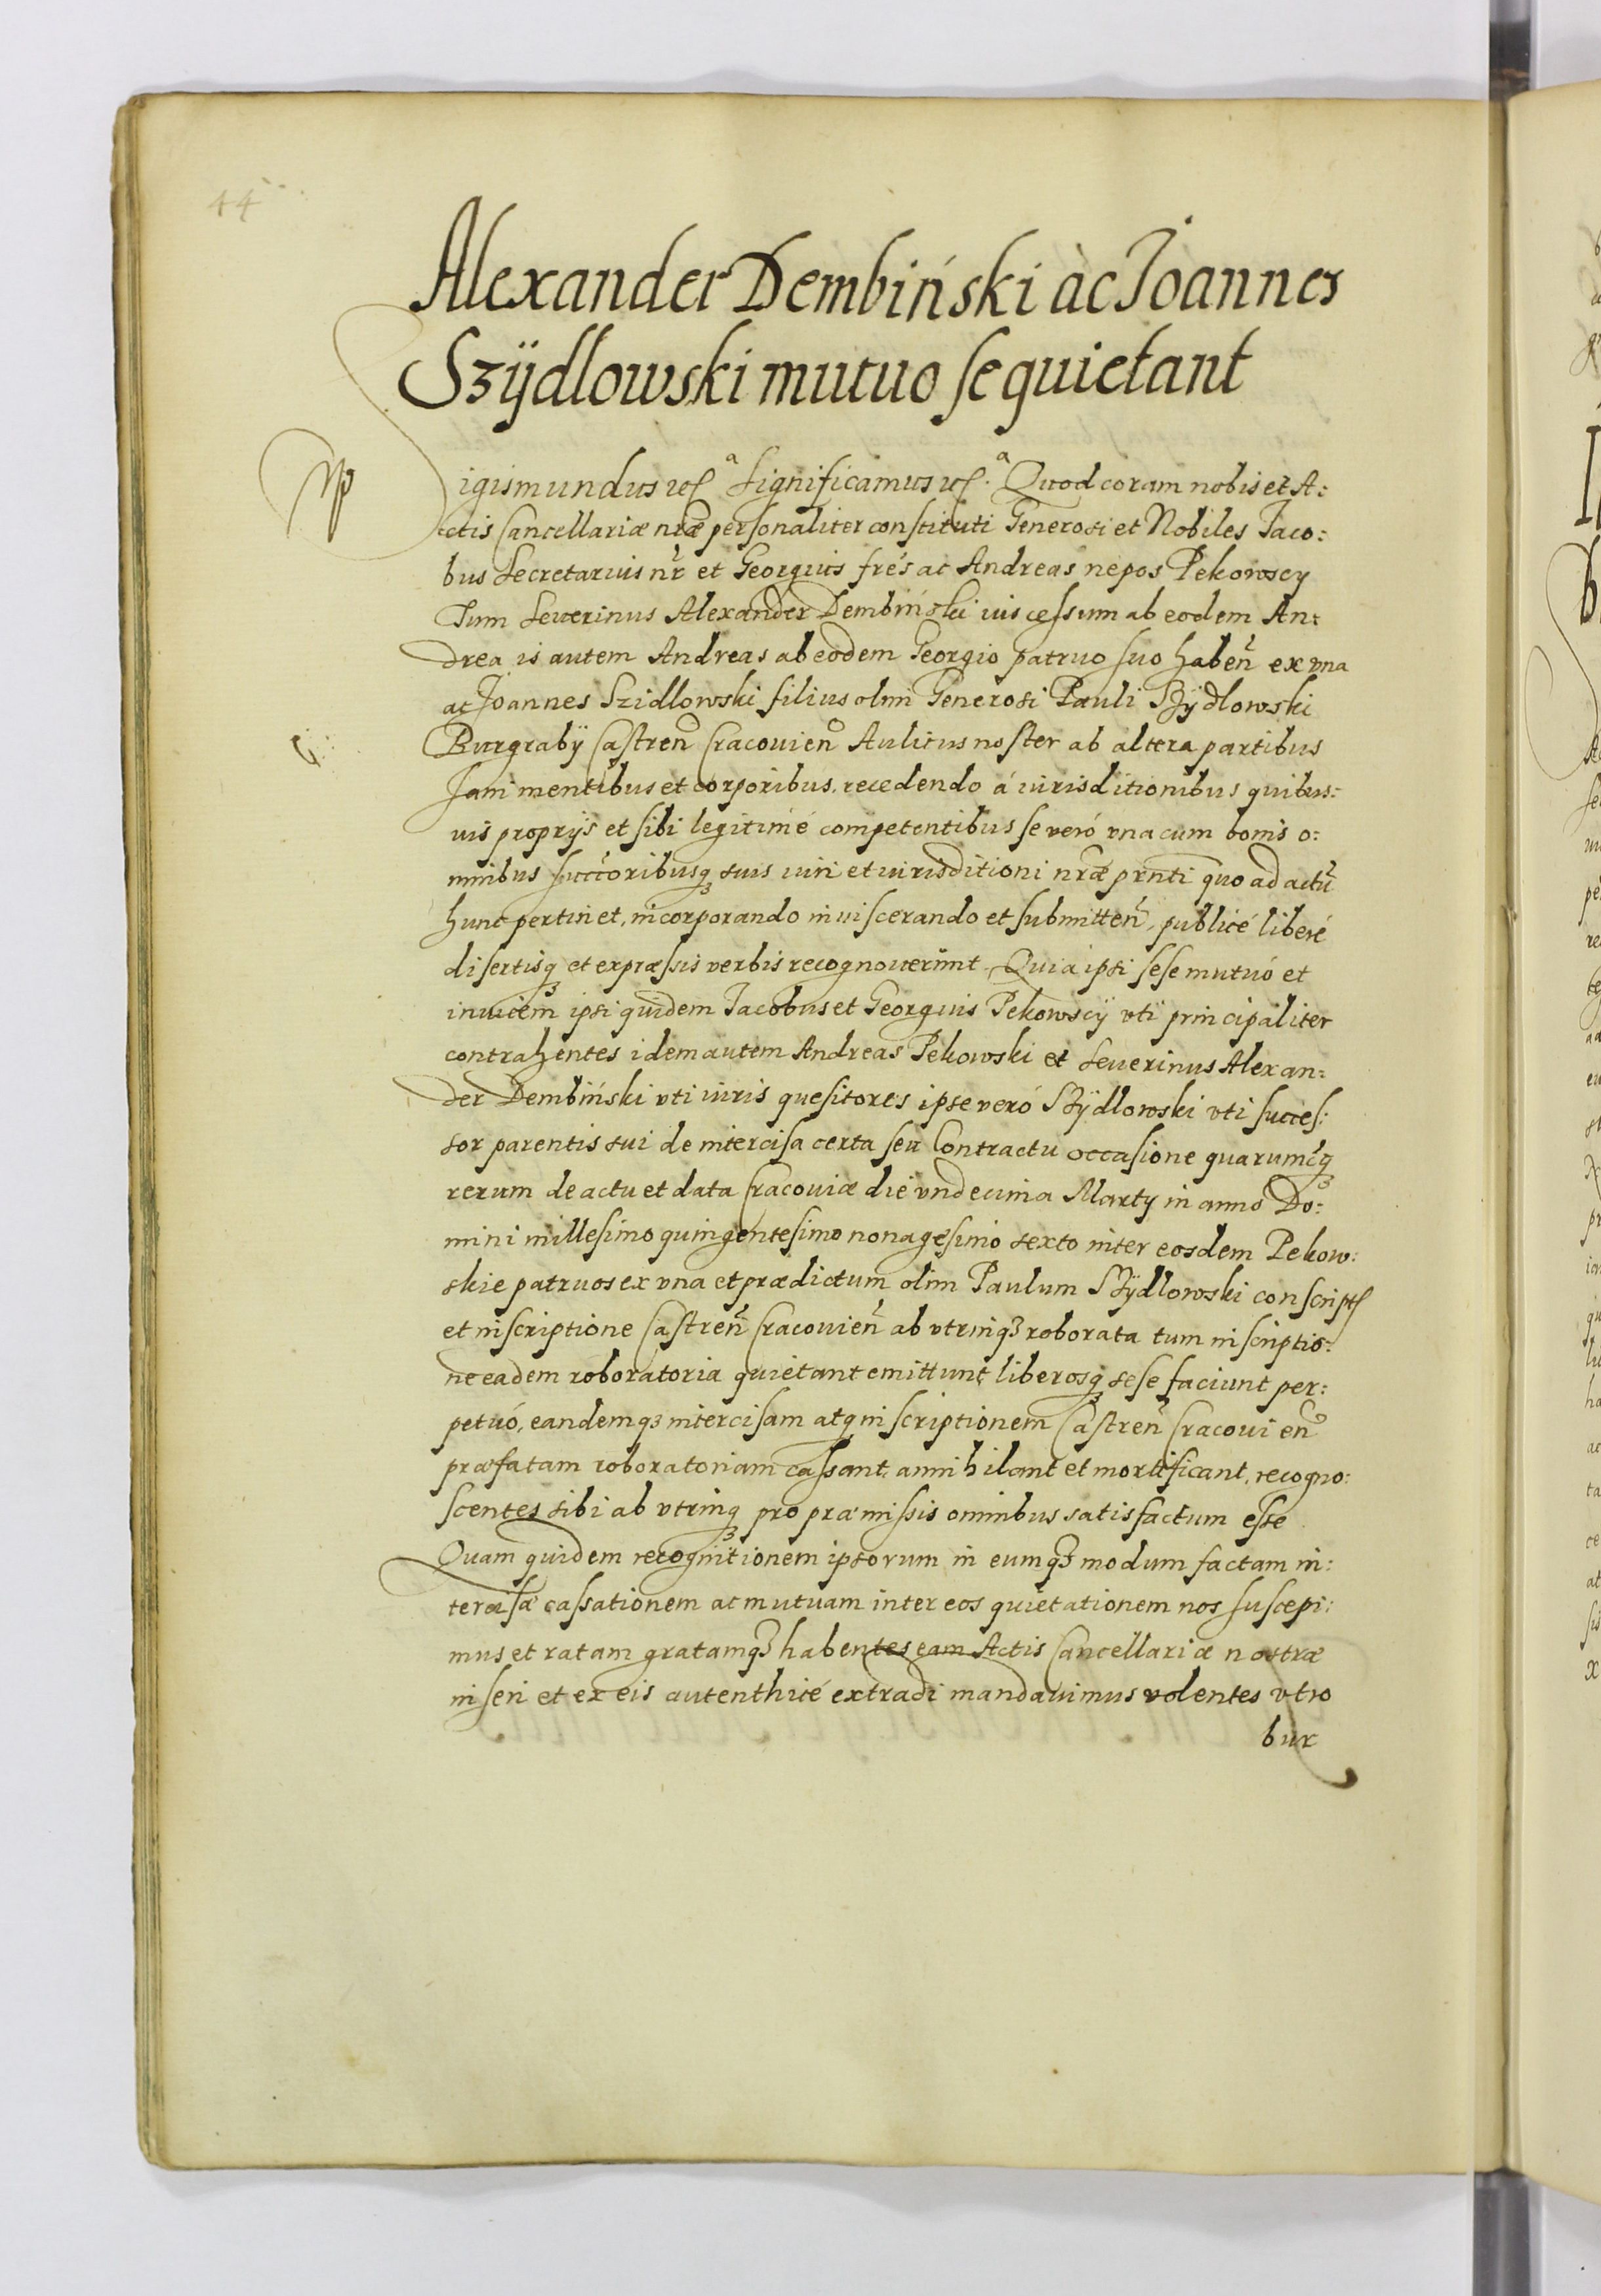 44
Alexander Dembiński àc Joannes
Szÿdlowski mutuo se quietant
Sigismundus etc. Significamus etc. Quod coram nobis et A:
ctis Cancellariæ nr̃æ personaliter constituti Generosi et Nobiles Jaco:
bus Secretarius nr̃ et Georgius frẽs ac Andreas nepos Pekowscy
Tum Seuerinus Alexander Dembiński ius cessum ab eodem An:
drea is autem Andreas ab eodem Georgio patruo suo habeñ ex vna
ac Joannes Szidlowski filius olim Generosi Pauli Szÿdlowski
Burgrabÿ Castreñ Cracouieñ Aulicus noster ab altera partibus
sani mentibus et corporibus, recedendo á iurisditionibus quibus:
uis proprijs et sibi legitimé competentibus se veró vna cum bonis o:
mnibus succ̃oribusq₃ suis iuri et iurisditioni nr̃æ prn̄ti quo ad actũ
hunc pertinet, incorporando inuiscerando et submitteñ, publicé liberé
disertisq₃ et expræssis verbis recognouerunt. Quia ipsi sese mutuó et
inuicem ipsi quidem Jacobus et Georgius Pekowscÿ vti principaliter
contrahentes idem autem Andreas Pekowski et Seuerinus Alexan:
der Dembiński vti iuris quesitores ipse veró Szÿdlowski vti succes:
sor parentis sui de intercisa certa seu Contractu occasione quarumcq₃
rerum de actu et data Cracouiæ die vndecima Marty in anno Do:
mini millesimo quingentesimo nonagesimo sexto inter eosdem Pekow:
skie patruos ex vna et prædictum olim Paulum Szÿdlowski conscript
et inscriptione Castreñ Cracouieñ ab vtrinq₃ roborata tum inscriptio:
ne eadem roboratoria quietant emittunt liberosq₃ sese faciunt per:
petuó, eandemq₃ intercisam atq inscriptionem Castreñ Cracouieñ
præfatam roboratoriam cassant, annihilant et mortificant, recogno:
scentes sibi ab vtrinq₃ pro præmissis omnibus satisfactum esse
Quam quidem recognitionem ipsorum in eumq₃ modum factam in:
tercisæ cassationem ac mutuam inter eos quietationem nos suscepi:
mus et ratam gratamq₃ habentes eam Actis Cancellariæ nostræ
inseri et ex eis autenthicé extradi mandauimus volentes vt ro
bur